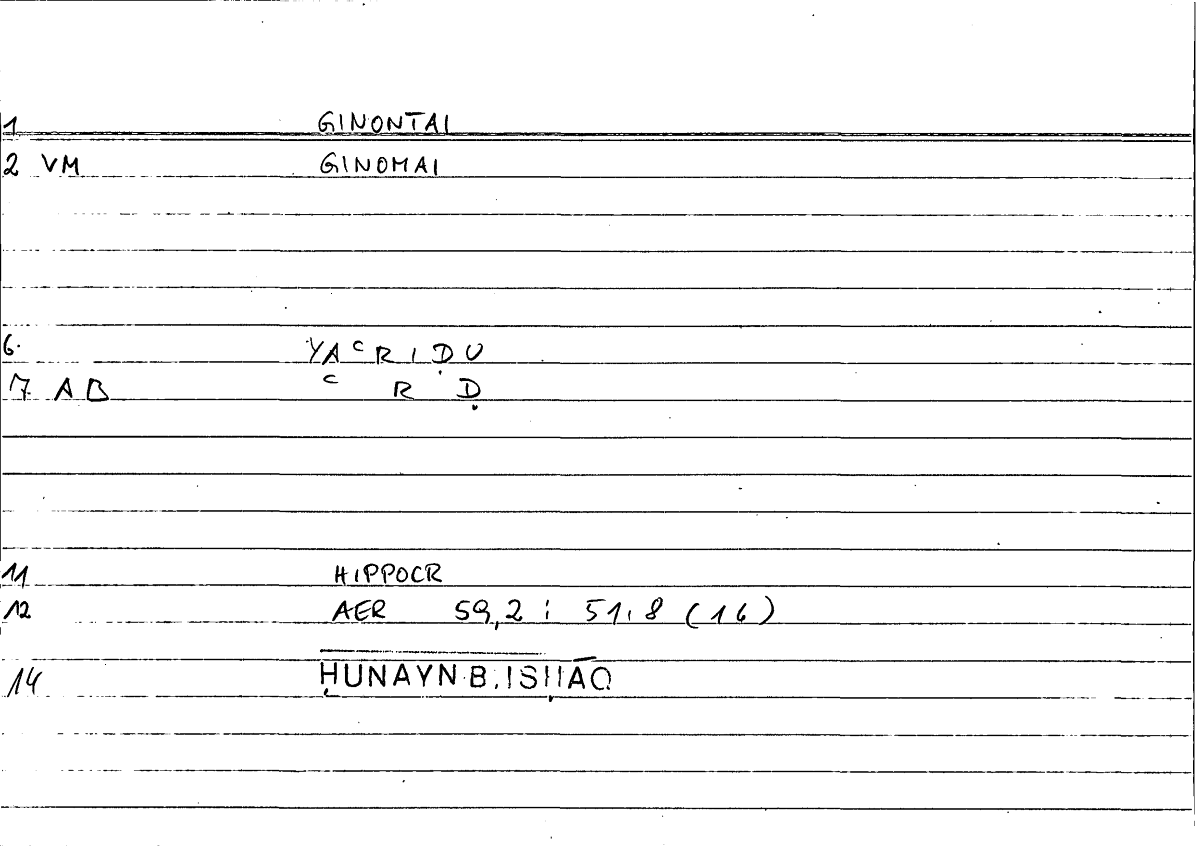 1 GINONTAI
2 VM GINOMAI
6. YAᶜRIḌU
7. AB ᶜ R Ḍ
11 HIPPOCR
12 AER 59,2 ; 51,8 (16)
14 ḤUNAYN B. ISḤĀQ